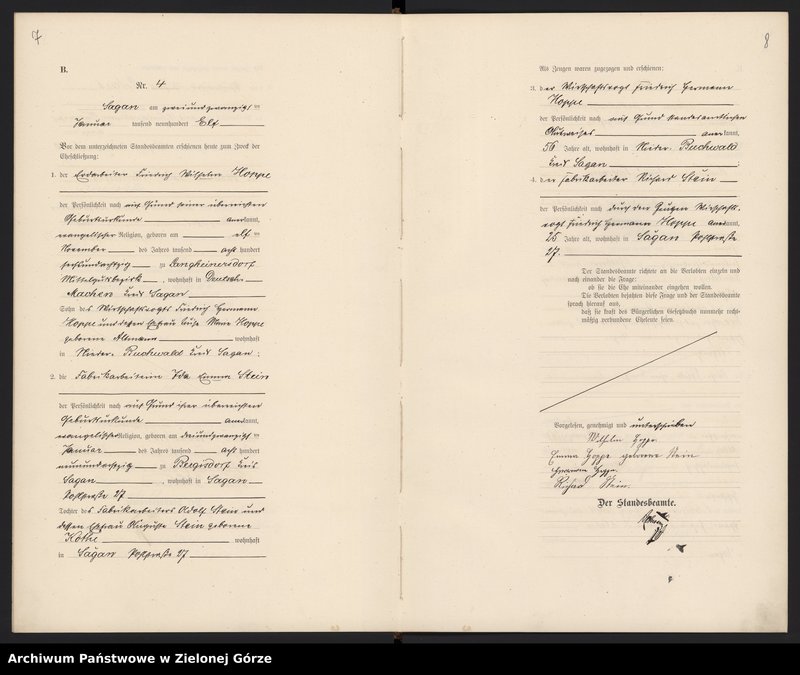 7
B.
Nr. 4
Sagan am zweiundzwanzigsten
Januar tausend neunhundert Elf
Vor dem unterzeichneten Standesbeamten erschienen heute zum Zweck der
Eheschließung:
1. der Erdarbeiter Friedrich Wilhelm Hoppe
der Persönlichkeit nach auf Grund seiner überreichten
Geburtsurkunde kannt,
evangelischer Religion, geboren am elf
November des Jahres tausend acht hundert
sechsundachtzig zu Langheinersdorf
Mittelgutsbezirk, wohnhaft in Deutsch-
Machen Kreis Sagan
Sohn des Wirtschaftsvogts Friedrich Hermann
Hoppe und dessen Ehefrau Luise Marie Hoppe
geborene Altmann wohnhaft
in Nieder-Buchwald Kreis Sagan.
2. die Fabrikarbeiterin Ida Emma Stein
der Persönlichkeit nach auf Grund ihrer überreichten
Geburtsurkunde kannt,
evangelischer Religion, geboren am dreiundzwanzigsten
Januar des Jahres tausend acht hundert
neunundachtzig zu Bergisdorf Kreis
Sagan, wohnhaft in Sagan
Poststraße 27
Tochter des Fabrikarbeiters Adolf Stein und
dessen Ehefrau Auguste Stein geborene
Kothe wohnhaft
in Sagan Poststraße 27
8
Als Zeugen waren zugezogen und erschienen:
3. der Wirtschaftsvogt Friedrich Hermann
Hoppe
der Persönlichkeit nach auf Grund standesamtlichen
Ausweises kannt,
56 Jahre alt, wohnhaft in Nieder-Buchwald
Kreis Sagan;
4. der Fabrikarbeiter Richard Stein
der Persönlichkeit nach durch den Zeugen Wirtschafts-
vogt Friedrich Hermann Hoppe kannt,
25 Jahre alt, wohnhaft in Sagan Poststraße
27.
Der Standesbeamte richtete an die Verlobten einzeln und
nach einander die Frage:
ob sie die Ehe miteinander eingehen wollen.
Die Verlobten bejahten diese Frage und der Standesbeamte
sprach hierauf aus,
daß sie kraft des Bürgerlichen Gesetzbuchs nunmehr recht-
mäßig verbundene Eheleute seien.
Vorgelesen, genehmigt und unterschrieben
Wilhelm Hoppe
Emma Hoppe geborene Stein
Hermann Hoppe
Richard Stein.
Der Standesbeamte.
Archiwum Państwowe w Zielonej Górze